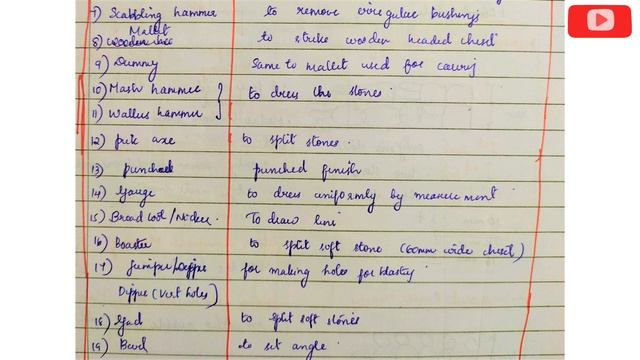 7) Scabbling hammer to remove irregular bushings
Mallet
8) Wooden to strike wooden headed chisel
9) Dummy Same to mallet used for carving
10) Mash hammer to dress the stones.
11) Wallers hammer
12) pick axe to split stones.
13) punched punched finish
14) Gauge to dress uniformly by measurement
15) Broad tool / To draw line
16) Boaster to split soft stone (60mm wide chisel)
17) Jumper / for making holes for blasting
Dipper (vert holes)
18) Gad to split soft stones
19) Bevel to set angle.